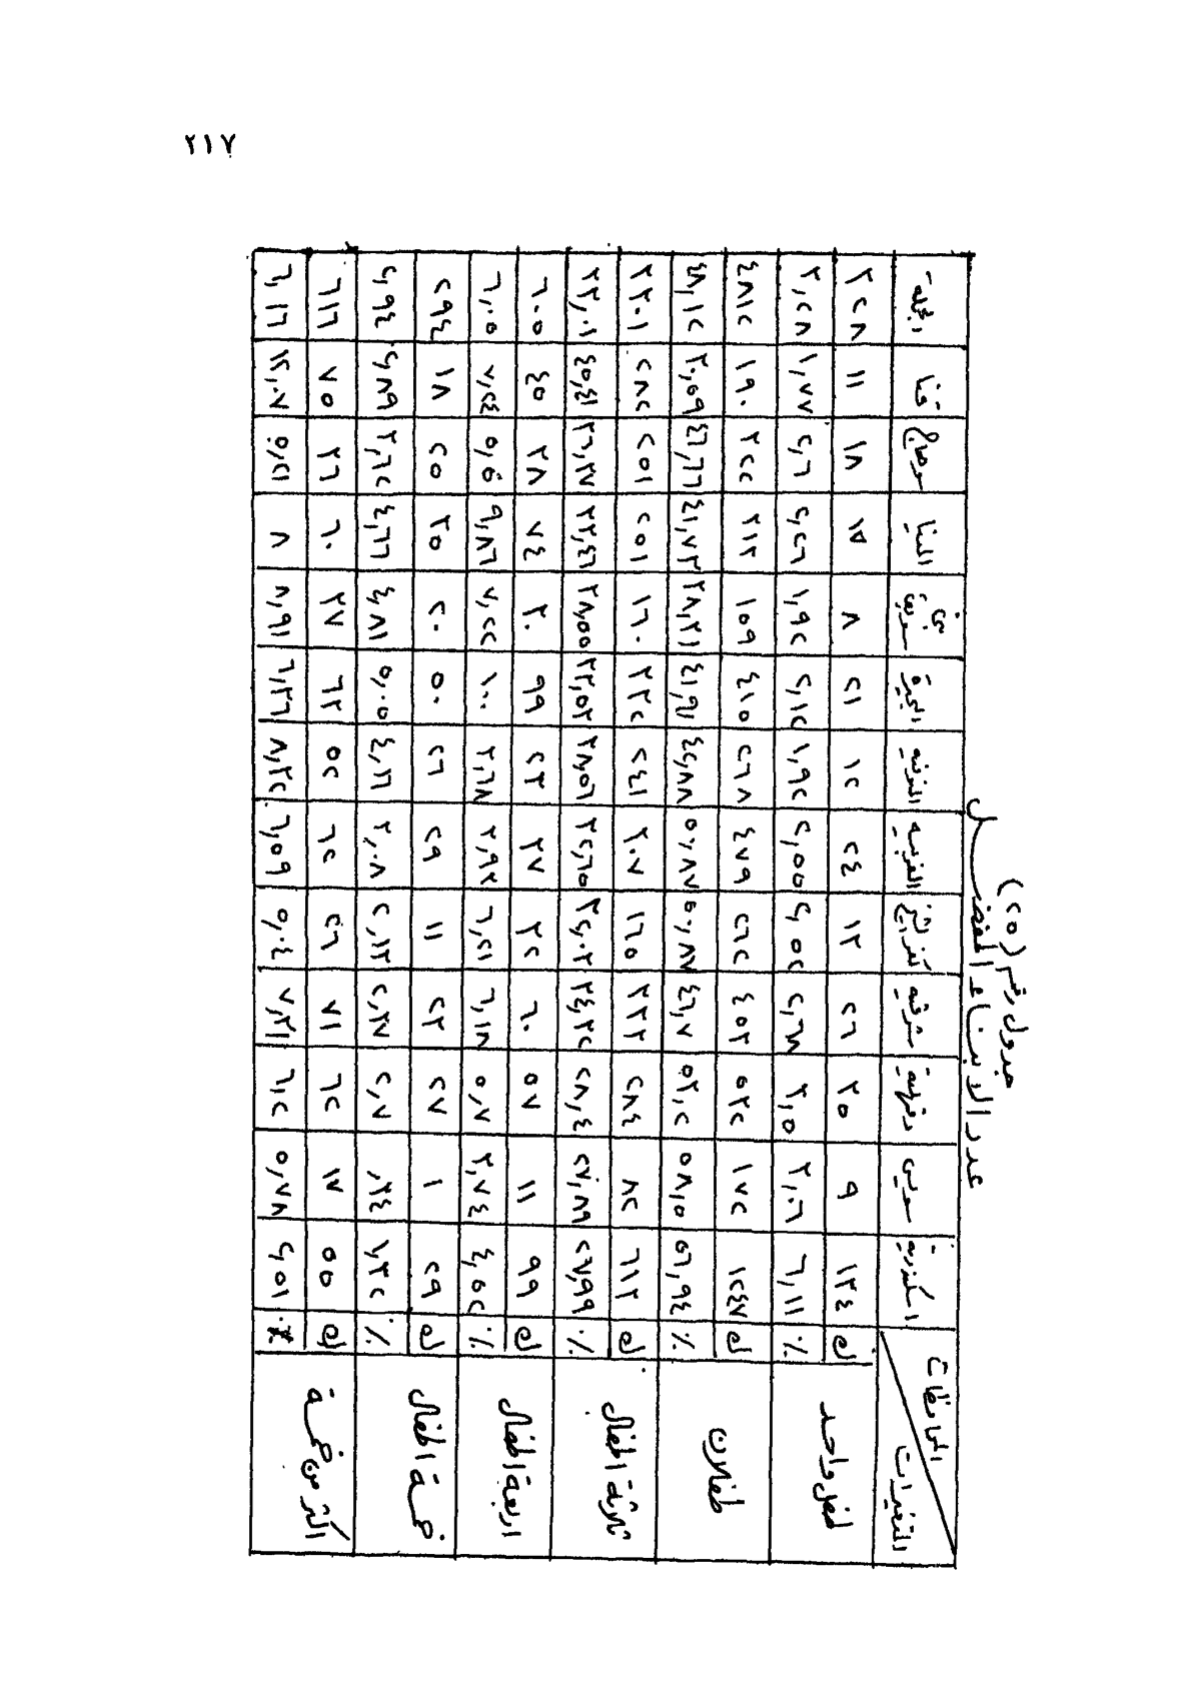 ٢١٧
جدول رقم (٢٥)
عدد الابناء المفضل
المحافظات المتغيرات اسكندرية سويس دقهلية شرقية كفرالشيخ الغربيه المنوفيه البحيرة بنى سويف المنيا سوهاج قنا الجملة
طفل واحد ك ١٣٤ ٩ ٣٥ ٢٦ ١٣ ٢٤ ١٢ ٢١ ٨ ١٧ ١٨ ١١ ٣٢٨
٪ ٦,١١ ٣,٠٦ ٣,٥ ٢,٦٨ ٢,٥٢ ٢,٥٥ ١,٩٢ ٢,١٢ ١,٩٢ ٢,٢٦ ٢,٦ ١,٧٧ ٣,٢٨
طفلان ك ١٢٤٧ ١٧٢ ٥٣٢ ٤٥٣ ٢٦٢ ٤٧٩ ٢٦٨ ٤١٥ ١٥٩ ٣١٣ ٣٢٢ ١٩٠ ٤٨١٢
٪ ٥٦,٩٤ ٥٨,٥ ٥٣,٢ ٤٦,٧ ٥٠,٨٧ ٥٠,٨٧ ٤٢,٨٨ ٤١,٩١ ٣٨,٣١ ٤١,٧٣ ٤٦,٦٦ ٣٠,٥٩ ٤٨,١٢
ثلاثة اطفال ك ٦١٣ ٨٢ ٢٨٤ ٣٣٣ ١٦٥ ٣٠٧ ٢٤١ ٣٣٢ ١٦٠ ٢٥١ ٢٥١ ٢٨٢ ٣٣٠١
٪ ٢٧,٩٩ ٢٧,٨٩ ٢٨,٤ ٣٤,٣٢ ٣٢,٠٣ ٣٢,٦٥ ٣٨,٥٦ ٣٣,٥٣ ٣٨,٥٥ ٣٣,٤٦ ٣٦,٣٧ ٤٥,٤١ ٣٣,٠١
اربعة اطفال ك ٩٩ ١١ ٥٧ ٦٠ ٣٢ ٣٧ ٢٣ ٩٩ ٣٠ ٧٤ ٣٨ ٤٥ ٦٠٥
٪ ٤,٥٢ ٣,٧٤ ٥,٧ ٦,١٨ ٦,٢١ ٣,٩٣ ٣,٦٨ ١٠٠ ٧,٢٢ ٩,٨٦ ٥,٥ ٧,٢٤ ٦,٠٥
خمسة اطفال ك ٢٩ ١ ٢٧ ٢٣ ١١ ٢٩ ٢٦ ٥٠ ٢٠ ٣٥ ٢٥ ١٨ ٢٩٤
٪ ١,٣٢ ,٣٤ ٢,٧ ٢,٣٧ ٢,١٣ ٣,٠٨ ٤,١٦ ٥,٠٥ ٤,٨١ ٤,٦٦ ٣,٦٢ ٢,٨٩ ٢,٩٤
اكثر من خمسة ك ٥٥ ١٧ ٦٢ ٧١ ٢٦ ٦٢ ٥٢ ٦٣ ٣٧ ٦٠ ٣٦ ٧٥ ٦١٦
٪ ٢,٥١ ٥,٧٨ ٦,٢ ٧,٣١ ٥,٠٤ ٦,٥٩ ٨,٣٢ ٦,٣٦ ٨,٩١ ٨ ٥,٢١ ١٢,٠٧ ٦,١٦